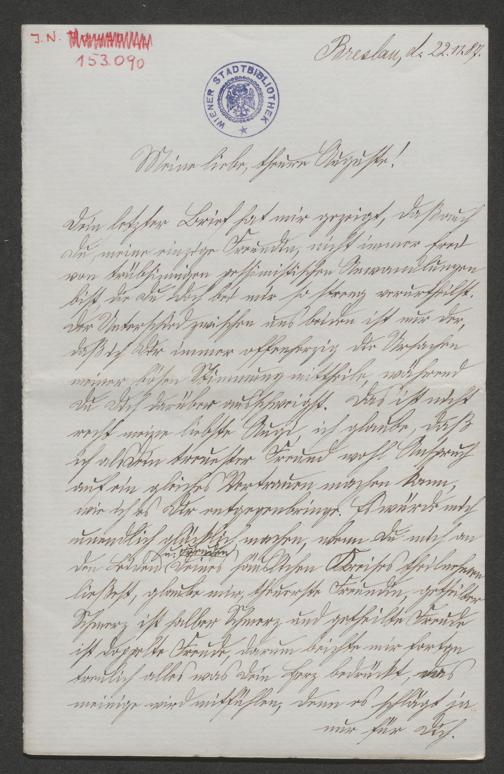 J. N.
153.090
WIENER STADTBIBLIOTHEK
Breslau, d. 22.11.87.
Meine liebe, theure Auguste!
Dein letzter Brief hat mir gezeigt, daß auch
du, meine einzige Freundin, nicht immer frei
von trübsinnigen pessimistischen Anwandlungen
bist, die du doch bei mir so streng verurtheilst.
Der Unterschied zwischen uns beiden ist nur der,
daß ich Dir immer offenherzig die Ursachen
meiner bösen Stimmung mittheile, während
du Dich darüber ausschweigst. Das ist nicht
recht meine liebste Augi, ich glaube, daß
ich als Dein treuester Freund wohl Anspruch
auf ein gleiches Vertrauen machen kann,
wie ich es Dir entgegenbringe. Es würde mich
unendlich glücklich machen, wenn du mich an
den Leiden (und Freuden) Deines häuslichen Kreises theilnehmen
ließest, glaube mir, theuerste Freundin, getheilter
Schmerz ist halber Schmerz und getheilte Freude
ist doppelte Freude, darum beichte mir fortan
treulich alles was dein Herz bedrückt, das
meinige wird mitfühlen, denn es schlägt ja
nur für Dich.